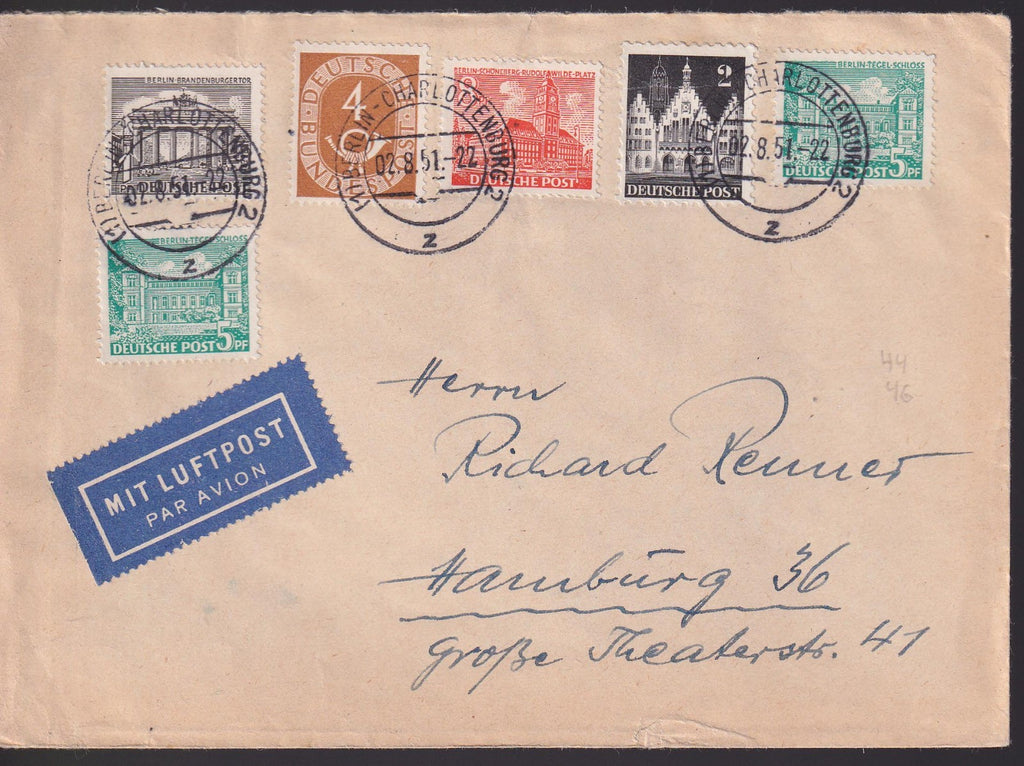 BERLIN-BRANDENBURGERTOR
DEUTSCHE POST
(1) BERLIN-CHARLOTTENBURG 2
02.8.51.-22
z
DEUTSCHE
BUNDESPOST
4
BERLIN-SCHÖNEBERG-RUDOLF-WILDE-PLATZ
DEUTSCHE POST
(1) BERLIN-CHARLOTTENBURG 2
02.8.51.-22
z
2
DEUTSCHE POST
(1) BERLIN-CHARLOTTENBURG 2
02.8.51.-22
z
BERLIN-TEGEL-SCHLOSS
DEUTSCHE POST 5 PF
BERLIN-TEGEL-SCHLOSS
DEUTSCHE POST 5 PF
MIT LUFTPOST
PAR AVION
44
46
Herrn
Richard Renner
Hamburg 36
Große Theaterstr. 41